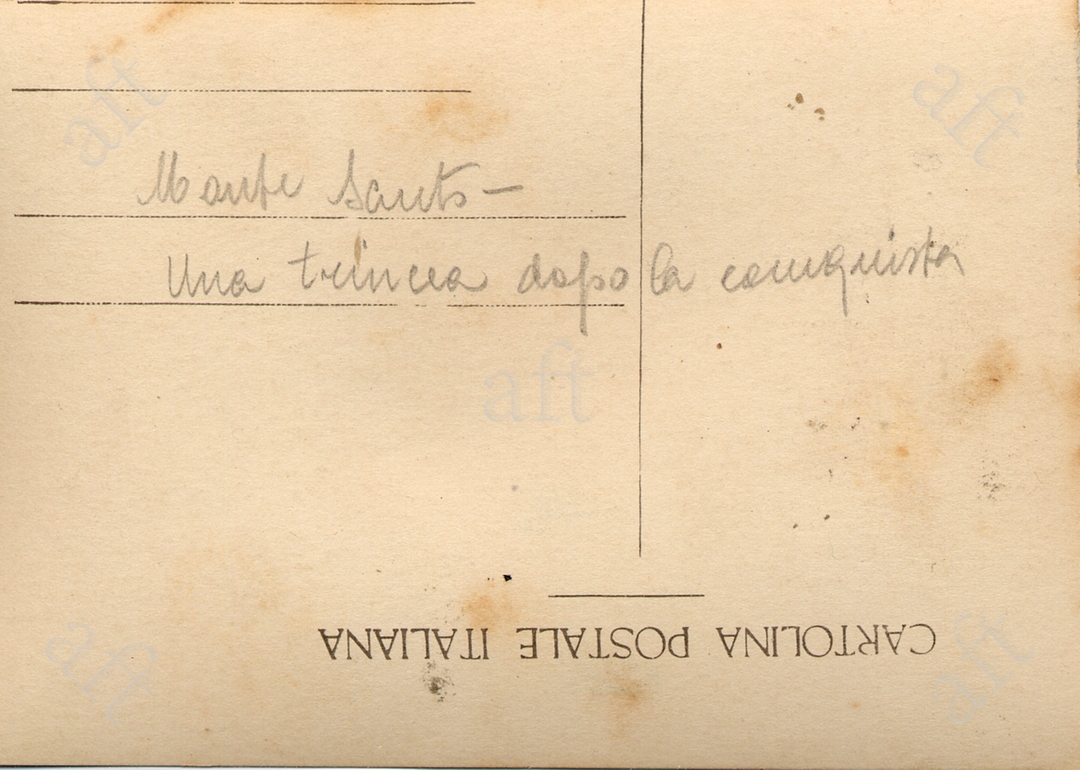 Monte Santo –
Una trincea dopo la conquista
aft
CARTOLINA POSTALE ITALIANA